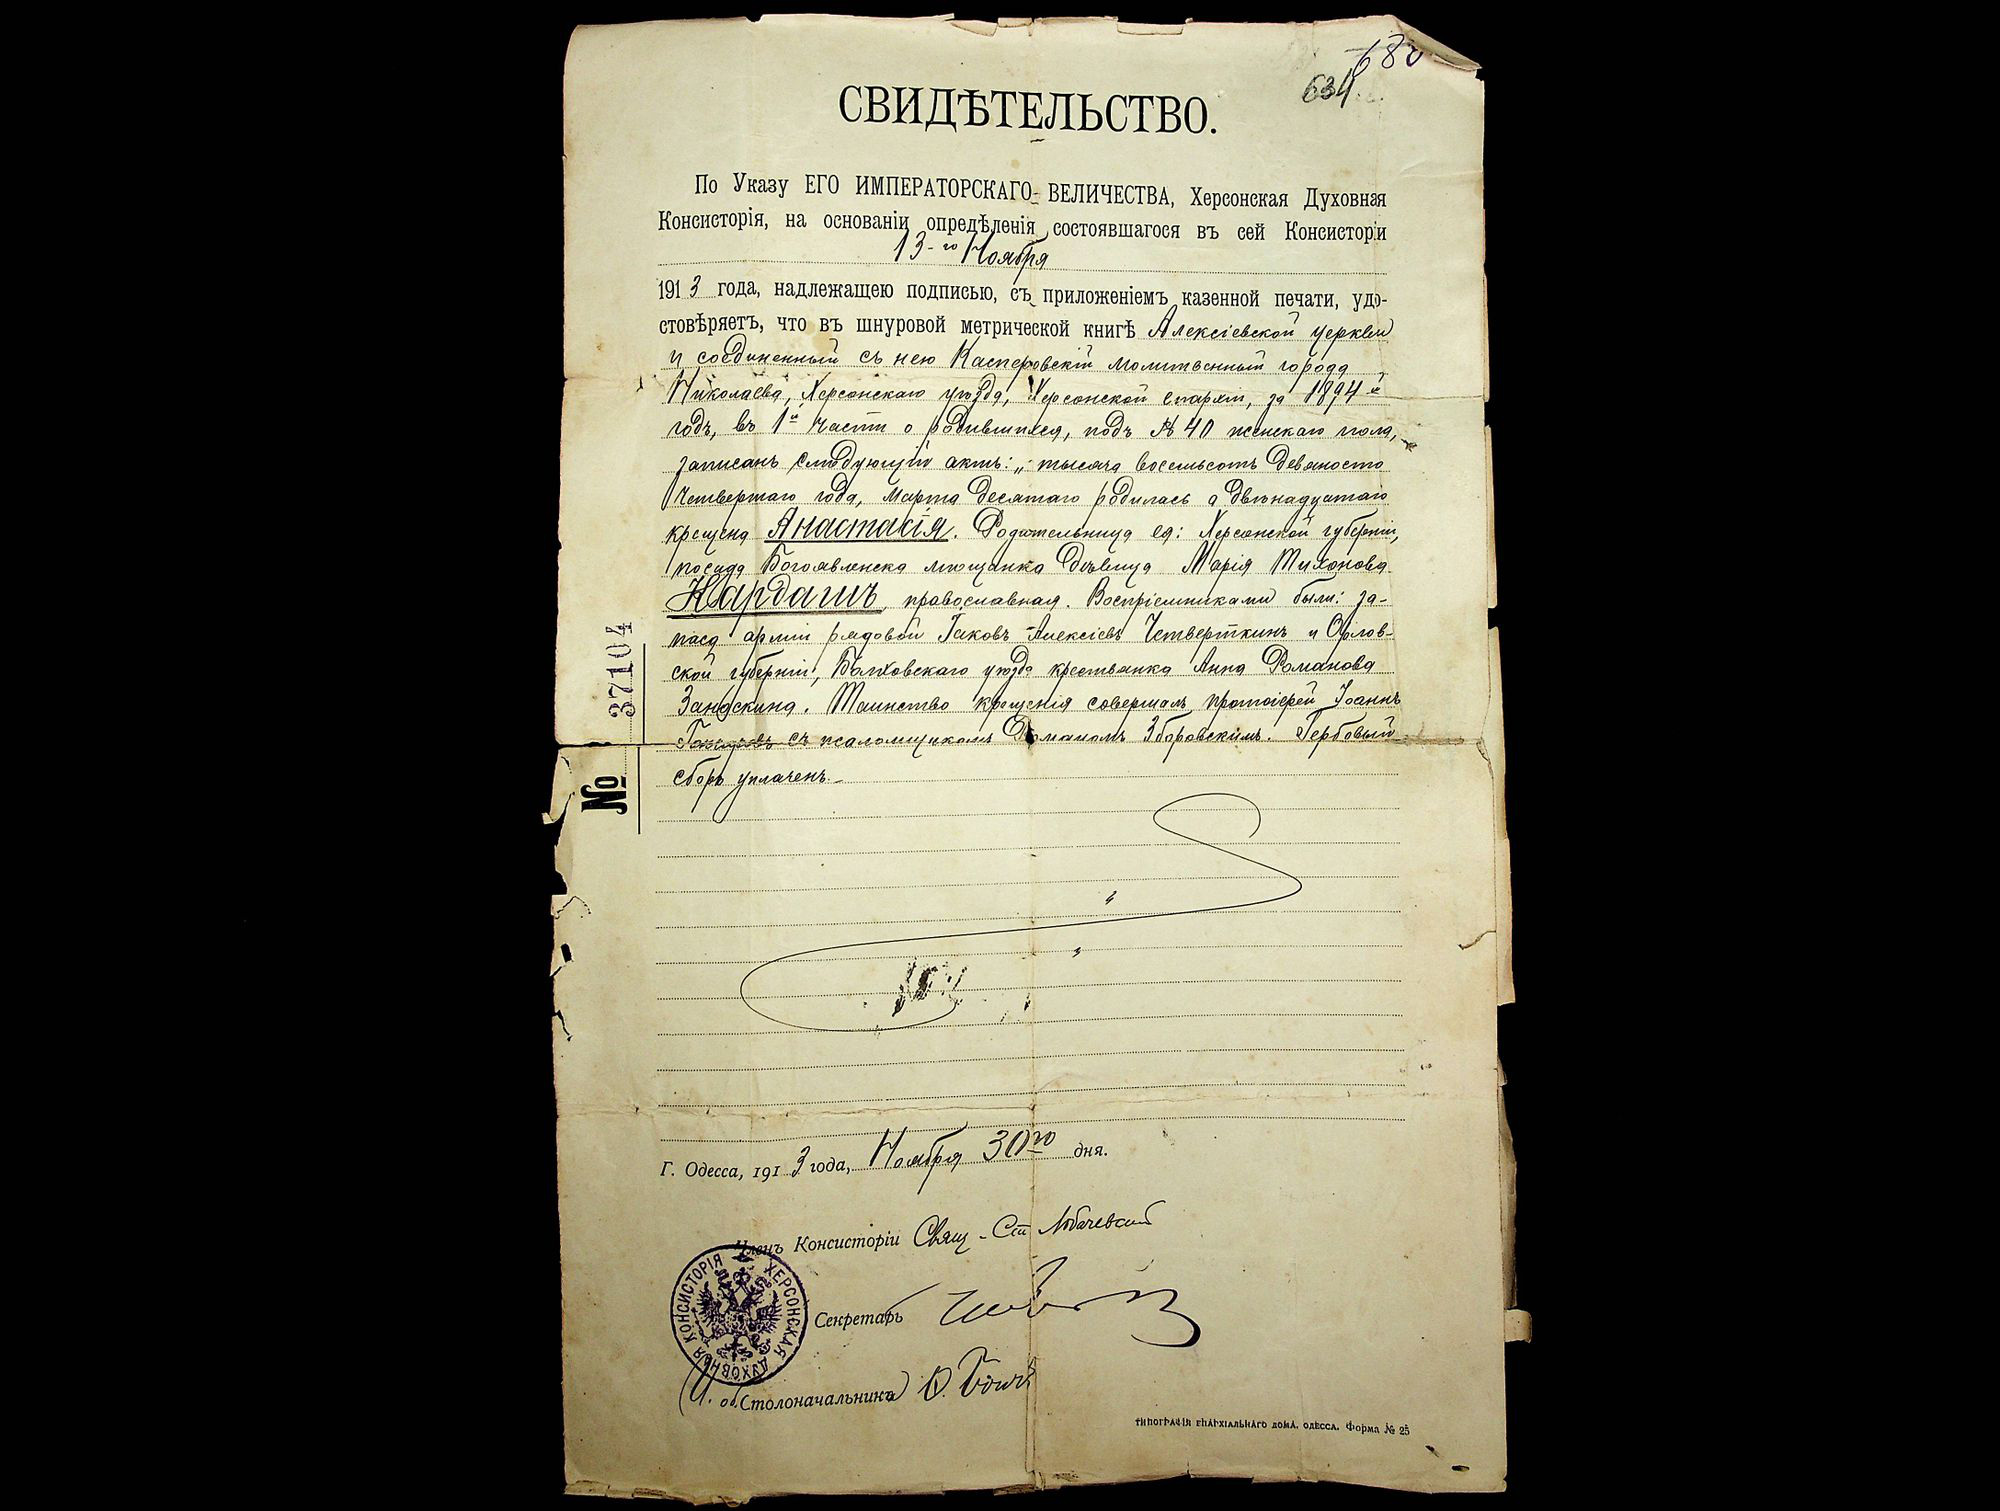 680
634
СВИДѢТЕЛЬСТВО.
По Указу ЕГО ИМПЕРАТОРСКАГО ВЕЛИЧЕСТВА, Херсонская Духовная
Консисторія, на основаніи опредѣленія состоявшагося въ сей Консисторіи
13-го Ноября
1913 года, надлежащею подписью, съ приложеніемъ казенной печати, удо-
стовѣряетъ, что въ шнуровой метрической книгѣ Алексіевской церкви
и соединенный съ нею Касперовскій молитвенный города
Николаева, Херсонскаго уѣзда, Херсонской епархіи, за 1894й
годъ, въ 1й части о родившихся, подъ № 40 женскаго пола,
записанъ слѣдующій актъ: „тысяча восемьсотъ девяносто
четвертаго года, марта десятаго родилась а двѣнадцатаго
крещена Анастасія. Родительница ея: Херсонской губерніи,
посада Богоявленска мѣщанка дѣвица Марія Тихонова
Кардашъ, православная. Воспріемниками были: за-
паса арміи рядовой Іаковъ Алексіевъ Четверткинъ и Орлов-
ской губерніи, Болховскаго уѣзда крестьянка Анна Романова
Таинство крещенія совершалъ протоіерей Іоаннъ
съ псаломщикомъ Романомъ Зборовскимъ. Гербовый
сборъ уплаченъ.
№ 37104
Г. Одесса, 1913 года, Ноября 30го дня.
Членъ Консисторіи Свящ. Лобачевскій
Секретарь
(И. об. Столоначальника)
ХЕРСОНСКАЯ ДУХОВНАЯ КОНСИСТОРІЯ
ТИПОГРАФІЯ ЕПАРХІАЛЬНАГО ДОМА. ОДЕССА. Форма № 25